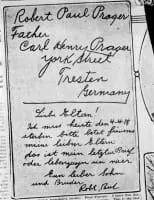 Robert Paul Prager
Father
Carl Henry Prager
York Street
Presten
Germany
Liebe Eltern!
Ich mus heute den 4-4-18
sterben bitte betet für
meine lieben Eltern
das ist mein letzter Brief
oder lebenszeichen von mir.
Euer lieber Sohn
und Bruder
Robt. Paul